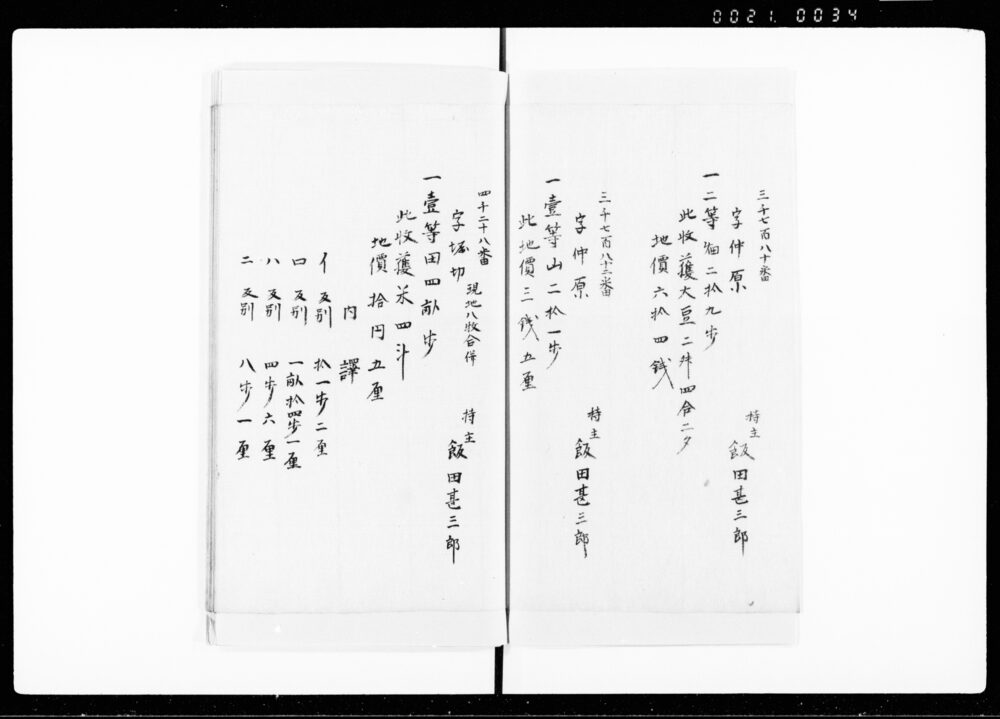 0021. 0034
三千七百八十番
字仲原
一二等畑二拾九歩
此收獲大豆二升四合二夕
地價六拾四錢
持主 飯田甚三郎
三千七百八十二番
字仲原
一壹等山二拾一歩
此地價三錢五厘
持主 飯田甚三郎
四千二十八番
字堀切 現地八枚合併
一壹等田四畝歩
此收獲米四斗
地價拾円五厘
持主 飯田甚三郎
内譯
イ 反別 拾一歩二厘
ロ 反別 一畝拾四歩一厘
ハ 反別 四歩六厘
ニ 反別 八歩一厘